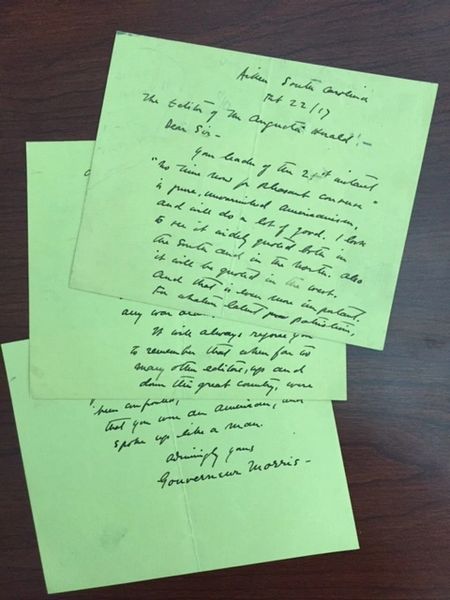 Aiken South Carolina
Feb 22/17
The Editor of The Augusta Herald:—
Dear Sir—
Your leader of the 21st instant
"No time now for pleasant converse"
is pure, unvarnished Americanism,
and will do a lot of good. I look
to see it widely quoted both in
the South and in the North. Also
it will be quoted in the West.
And that is even more important.
For whatever latent patriotism,
any war
It will always rejoice you
to remember that when far to
many other editors, up and
down this great country, were
been confounded,
that you were an American, and
spoke up like a man.
Admiringly yours
Gouverneur Morris—